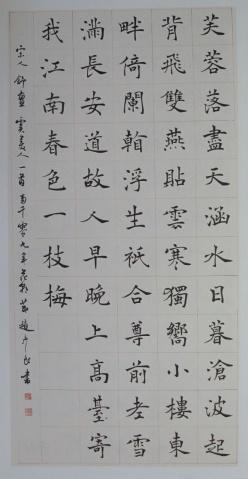 芙蓉落盡天涵水日暮滄波起
背飛雙燕貼雲寒獨嚮小樓東
畔倚闌看浮生祇合尊前老雪
滿長安道故人早晚上高臺寄
我江南春色一枝梅
宋人舒亶虞美人一首 千零九年 書